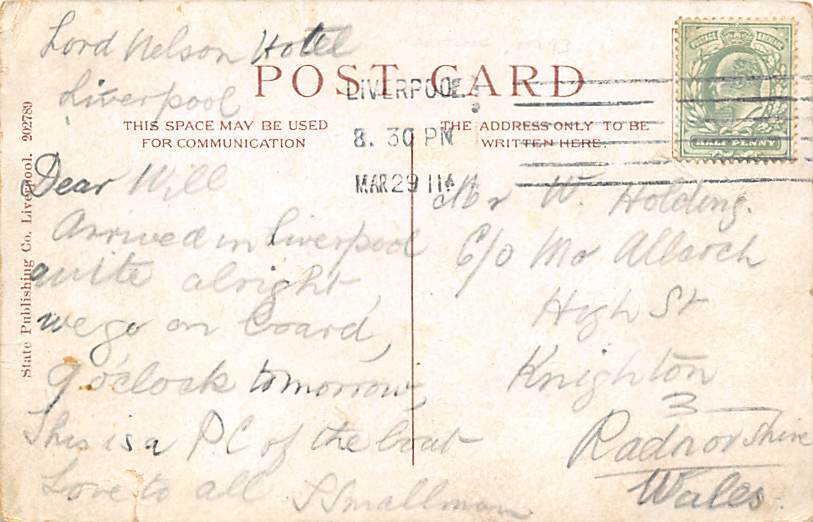 Lord Nelson Hotel
Liverpool
POST CARD
THIS SPACE MAY BE USED
FOR COMMUNICATION
THE ADDRESS ONLY TO BE
WRITTEN HERE.
LIVERPOOL.
8. 30 PM
MAR 29 11
HALF PENNY
State Publishing Co. Liverpool. 202789
Dear Will
Arrived in Liverpool
quite alright,
we go on board,
9 o'clock tomorrow,
This is a P.C of the boat
Love to all S Smallman
Mr W. Holding.
C/o Mr Allarch
High St
Knighton
3
Radnorshire
Wales.